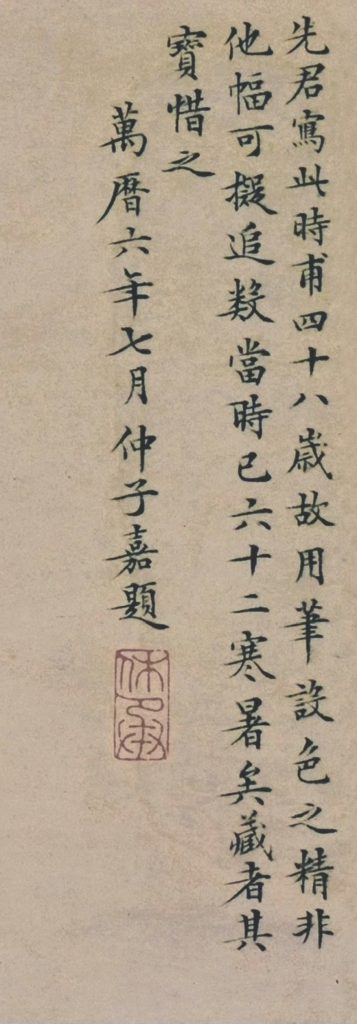 先君寫此時甫四十八歲故用筆設色之精非
他幅可擬追數當時已六十二寒暑矣藏者其
寶惜之
萬曆六年七月仲子嘉題
休承